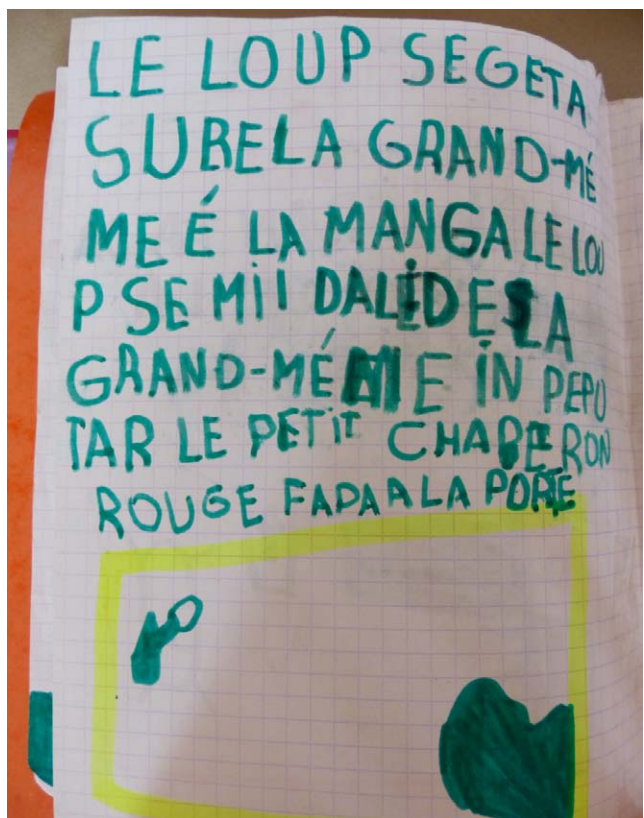 LE LOUP SEGETA
SURELA GRAND-MÉ
ME É LA MANGA LE LOU
P SE MII DALEDE LA
GRAND-MÉME IN PEPU
TAR LE PETIT CHAPERON
ROUGE FAPAALA PORTE